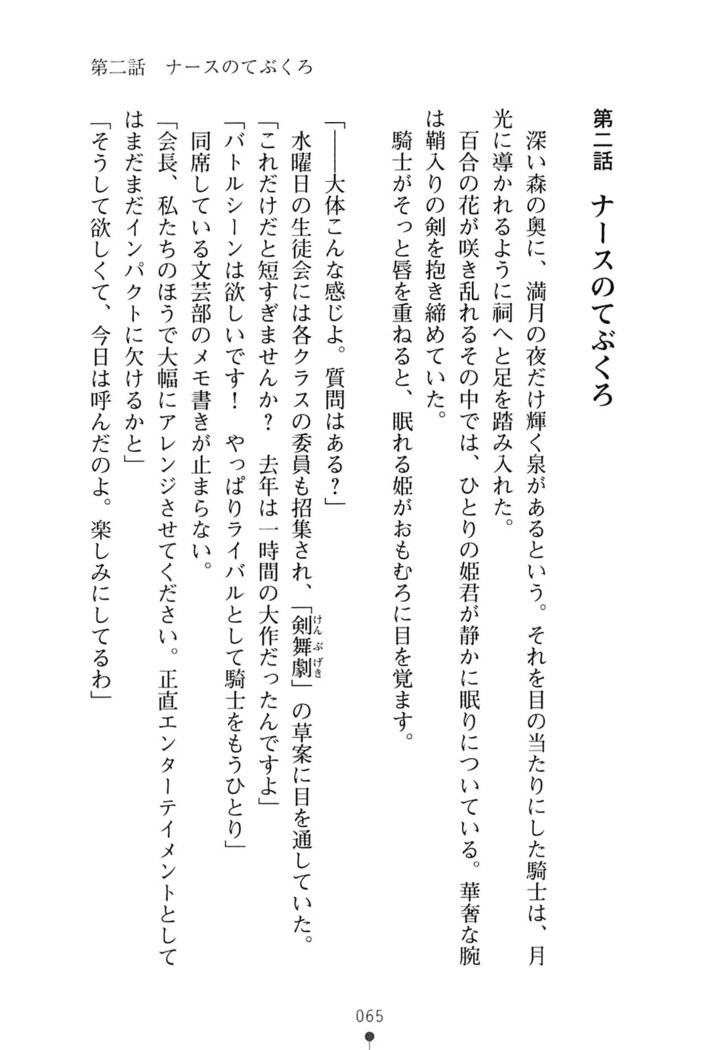 第二話　ナースのてぶくろ
第二話　ナースのてぶくろ
　深い森の奥に、満月の夜だけ輝く泉があるという。それを目の当たりにした騎士は、月
光に導かれるように祠へと足を踏み入れた。
　百合の花が咲き乱れるその中では、ひとりの姫君が静かに眠りについている。華奢な腕
は鞘入りの剣を抱き締めていた。
　騎士がそっと唇を重ねると、眠れる姫がおもむろに目を覚ます。
「――大体こんな感じよ。質問はある？」
　水曜日の生徒会には各クラスの委員も招集され、「剣舞劇」の草案に目を通していた。
けんぶげき
「これだけだと短すぎませんか？　去年は一時間の大作だったんですよ」
「バトルシーンは欲しいです！　やっぱりライバルとして騎士をもうひとり」
　同席している文芸部のメモ書きが止まらない。
「会長、私たちのほうで大幅にアレンジさせてください。正直エンターテイメントとして
はまだまだインパクトに欠けるかと」
「そうして欲しくて、今日は呼んだのよ。楽しみにしてるわ」
065